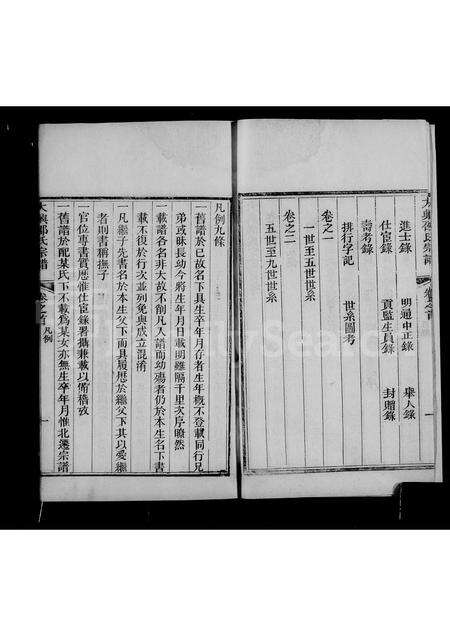 進士錄 明通中正錄 舉人錄
仕宦錄 貢監生員錄 封贈錄
壽考錄
排行字記 世系圖考
卷之一
一世至五世世系
卷之二
五世至九世世系
凡例九條
一舊譜於已故名下具生卒年月存者生年概不登載同行兄
弟或昧長幼今將生年月日載明雖隔千里次序瞭然
一舊譜各名非大故不削凡入譜而幼殤者仍於本生名下書
載不復於行次並列免與成立混淆
一凡繼子先書名於本生父下而具履歷於繼父下其以愛繼
者則書稱撫子
一官位專書實歷惟仕宦錄署攝兼載以備稽攷
一舊譜於配某氏下不載為某女亦無生卒年月惟北遷宗譜
大興邵氏宗譜 卷之首 凡例 一